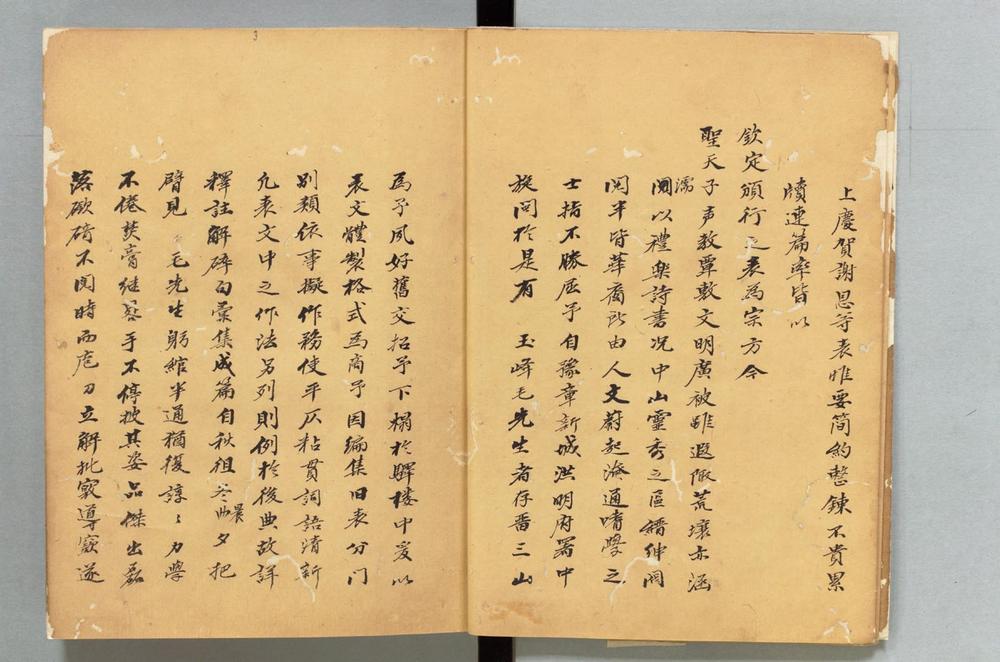 上慶賀謝恩等表唯要簡約整鍊不貴累
牘連篇率皆以
欽定頒行之表為宗方今
聖天子声教覃敷文明廣被雖遐陬荒壤亦涵
濡
闓以禮樂詩書况中山靈秀之區縉紳閥
閱半皆華裔所由人文蔚起淹通嗜學之
士指不勝屈予自豫章新城洪明府署中
旋閩於是有 玉峰毛先生者仔番三山
為予夙好舊交招予下榻於驛楼中爰以
表文體製格式為商予因編集旧表分门
別類依事擬作務使平仄粘貫詞語清新
九表文中之作法另列則例於後典故詳
釋註解碎句彙集成篇自秋徂冬晨夕把
臂見 毛先生躬綰半通猶復諄〻力學
不倦焚膏继晷手不停披其姿品傑出磊
落欹碕不閱時而庖刀立解批窾導窾遂
3